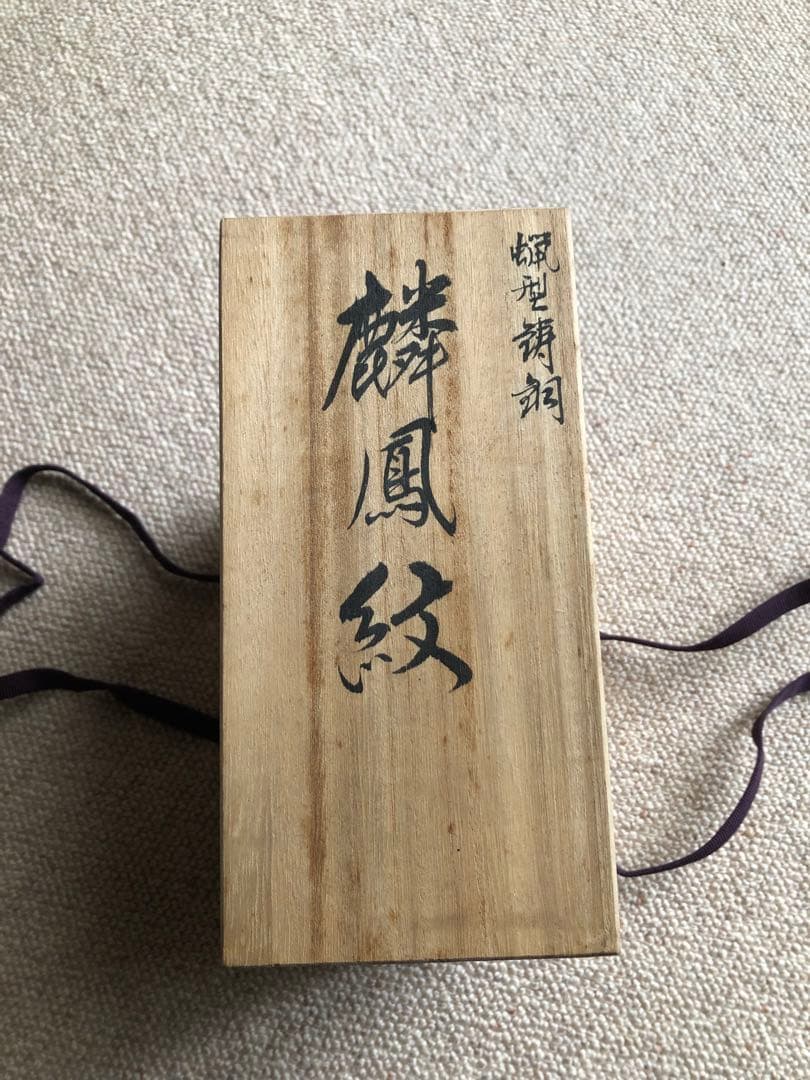 蝋型鋳銅
麟鳳紋